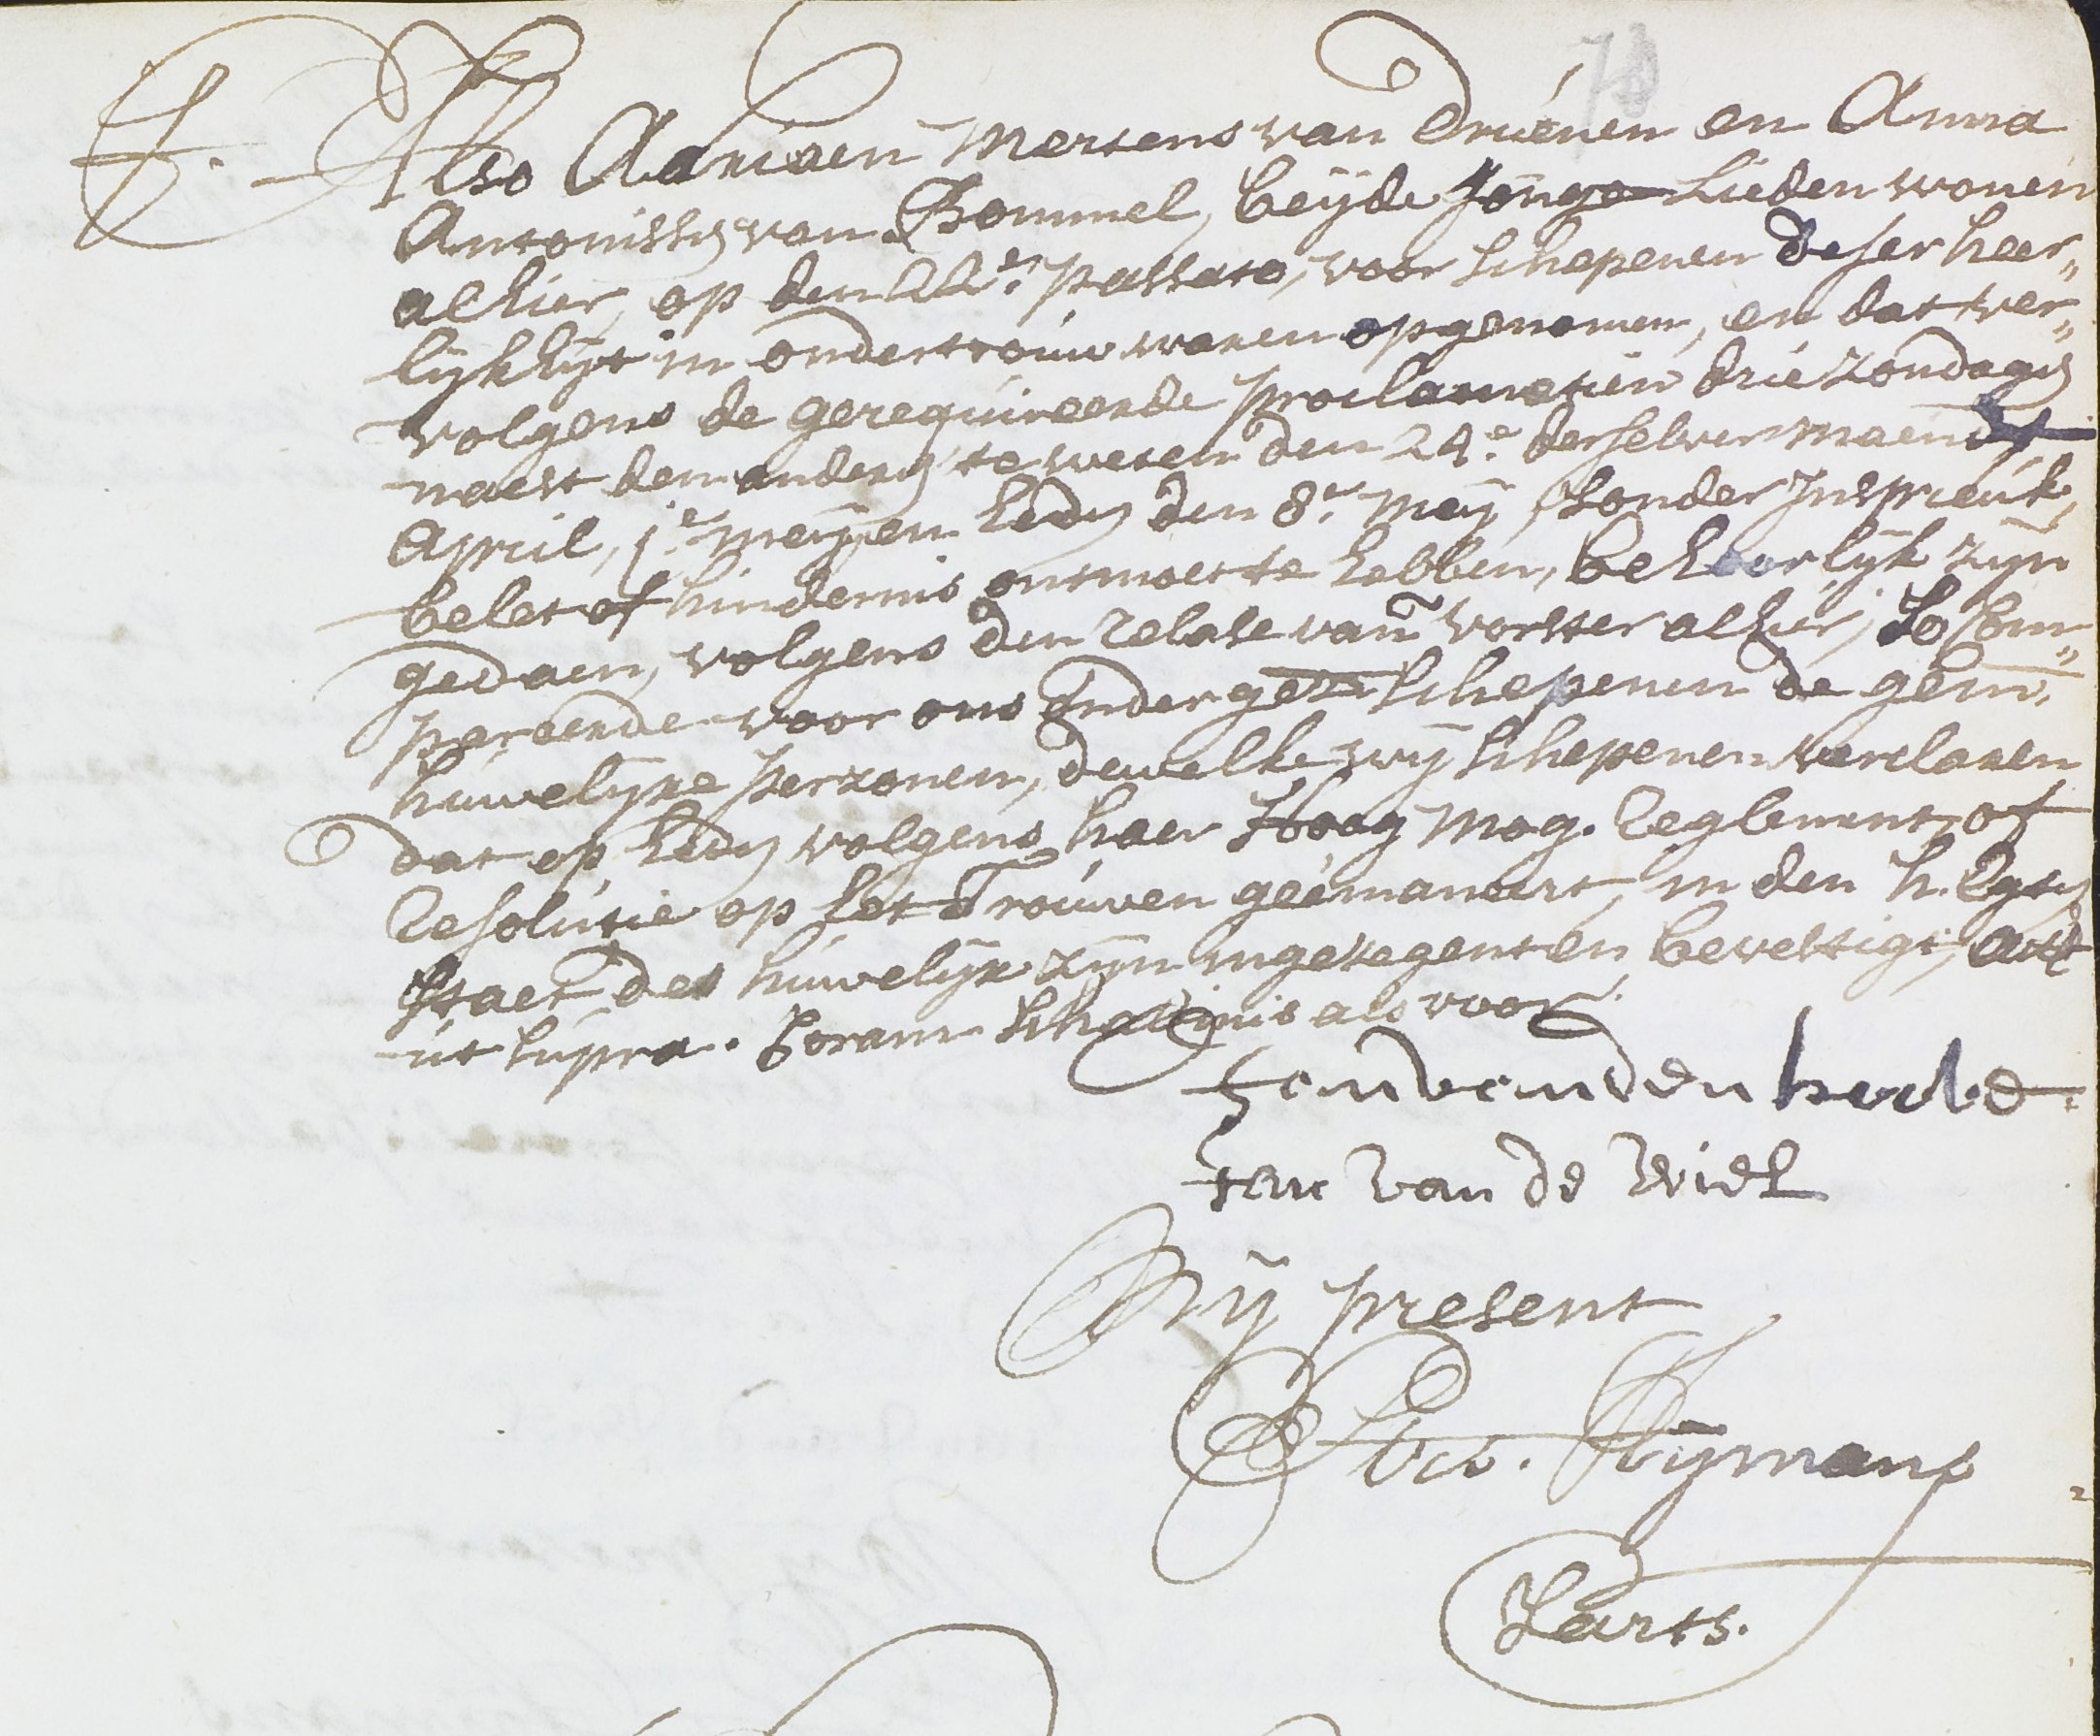 70
Also Adriaen Mertens van Drúenen en Anna
Antonissen van Bommel, beÿde Jonge Lieden wonen
alhier, op den 22e. passato, voor schepenen deser heer„
lÿkhÿt in ondertroúw waren opgenomen, en dat ver„
volgens de gerequireerde proclamatien drie zondagen
naest den anderen te weten den 24e. derselver maendt
April, 1e meÿ, en heden den 8e. meÿ, sonder Inspraeck,
belet of hindernis ontmoet te hebben, behoorlÿk zÿn
gedaen, volgens den relase van vorster alhier, So Com„
pareerde voor ons ondergeten schepenen de gem.
húwelÿke perzonen, dewelke wÿ schepenen verclaren
dat op heden volgens haer Hoog Mog. Reglement of
Resolútie op het Troúwen geëmaneert, in den h. Egten
Staet des húwelÿx zÿn ingesegent en bevestigt, act
út súpra. Coram Scabinis als voor.
Jan van den
Jan van de Wiel
Mÿ present
Rÿmans
Secrts.